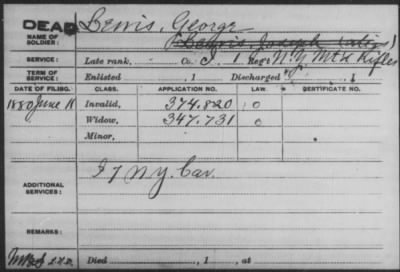 DEAD Lewis, George
NAME OF SOLDIER: Lewis, Joseph (alias)
SERVICE: Late rank, Co. I 1 Reg't N.Y. Mtd Rifles
TERM OF SERVICE: Enlisted , 1 Discharged , 1
DATE OF FILING. CLASS. APPLICATION NO. LAW. CERTIFICATE NO.
1880 June 11 Invalid, 374.820 0
Widow, 347.731 0
Minor,
ADDITIONAL SERVICES: I 7 N.Y. Cav.
REMARKS:
Died , 1 , at